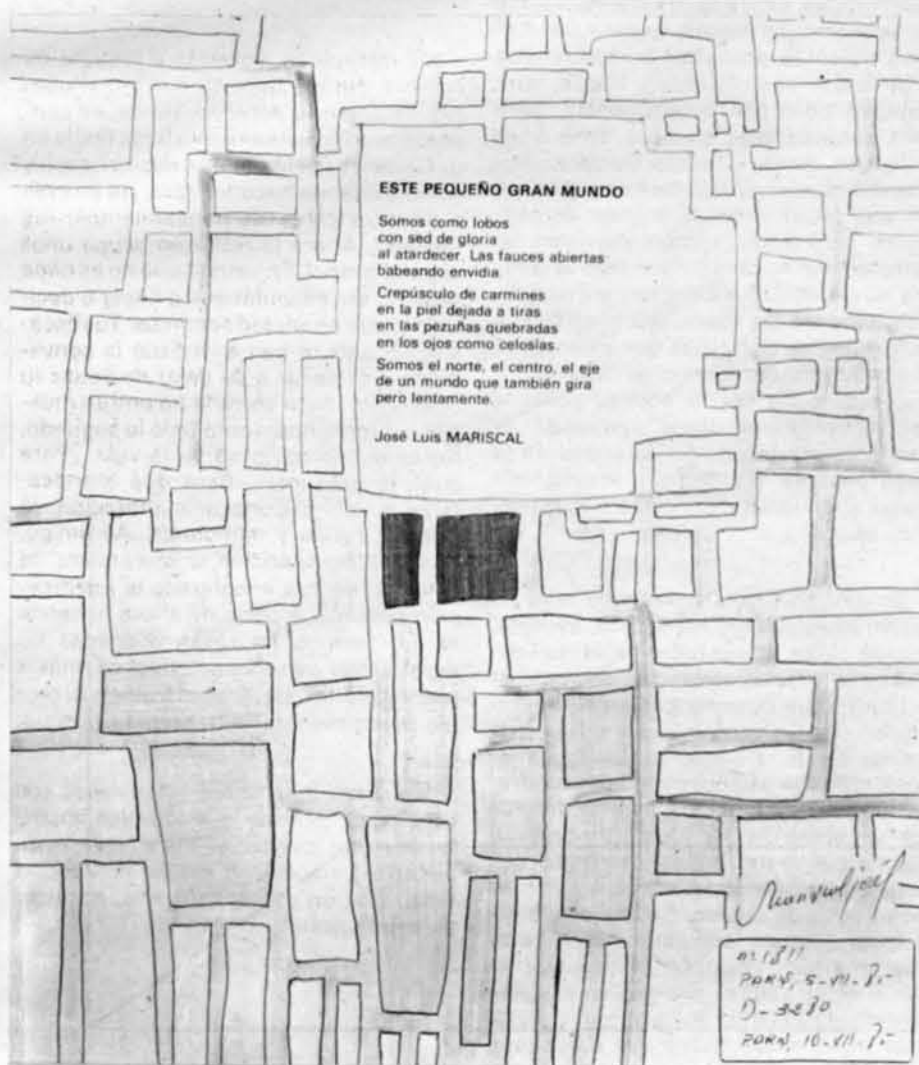 ESTE PEQUEÑO GRAN MUNDO
Somos como lobos
con sed de gloria
al atardecer. Las fauces abiertas
babeando envidia.
Crepúsculo de carmines
en la piel dejada a tiras
en las pezuñas quebradas
en los ojos como celosías.
Somos el norte, el centro, el eje
de un mundo que también gira
pero lentamente.
José Luis MARISCAL